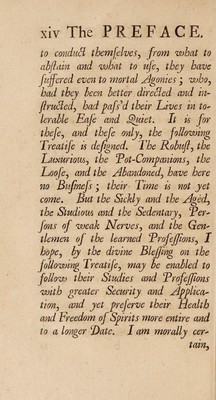 xiv The PREFACE.
to conduct themſelves, from what to
abſtain and what to uſe, they have
ſuffered even to mortal Agonies; who,
had they been better directed and in-
ſtructed, had paſs'd their Lives in to-
lerable Eaſe and Quiet. It is for
theſe, and theſe only, the following
Treatiſe is deſigned. The Robuſt, the
Luxurious, the Pot-Companions, the
Looſe, and the Abandoned, have here
no Buſineſs; their Time is not yet
come. But the Sickly and the Aged,
the Studious and the Sedentary, Per-
ſons of weak Nerves, and the Gen-
tlemen of the learned Profeſſions, I
hope, by the divine Bleſſing on the
following Treatiſe, may be enabled to
follow their Studies and Profeſſions
with greater Security and Applica-
tion, and yet preſerve their Health
and Freedom of Spirits more entire and
to a longer Date. I am morally cer-
tain,